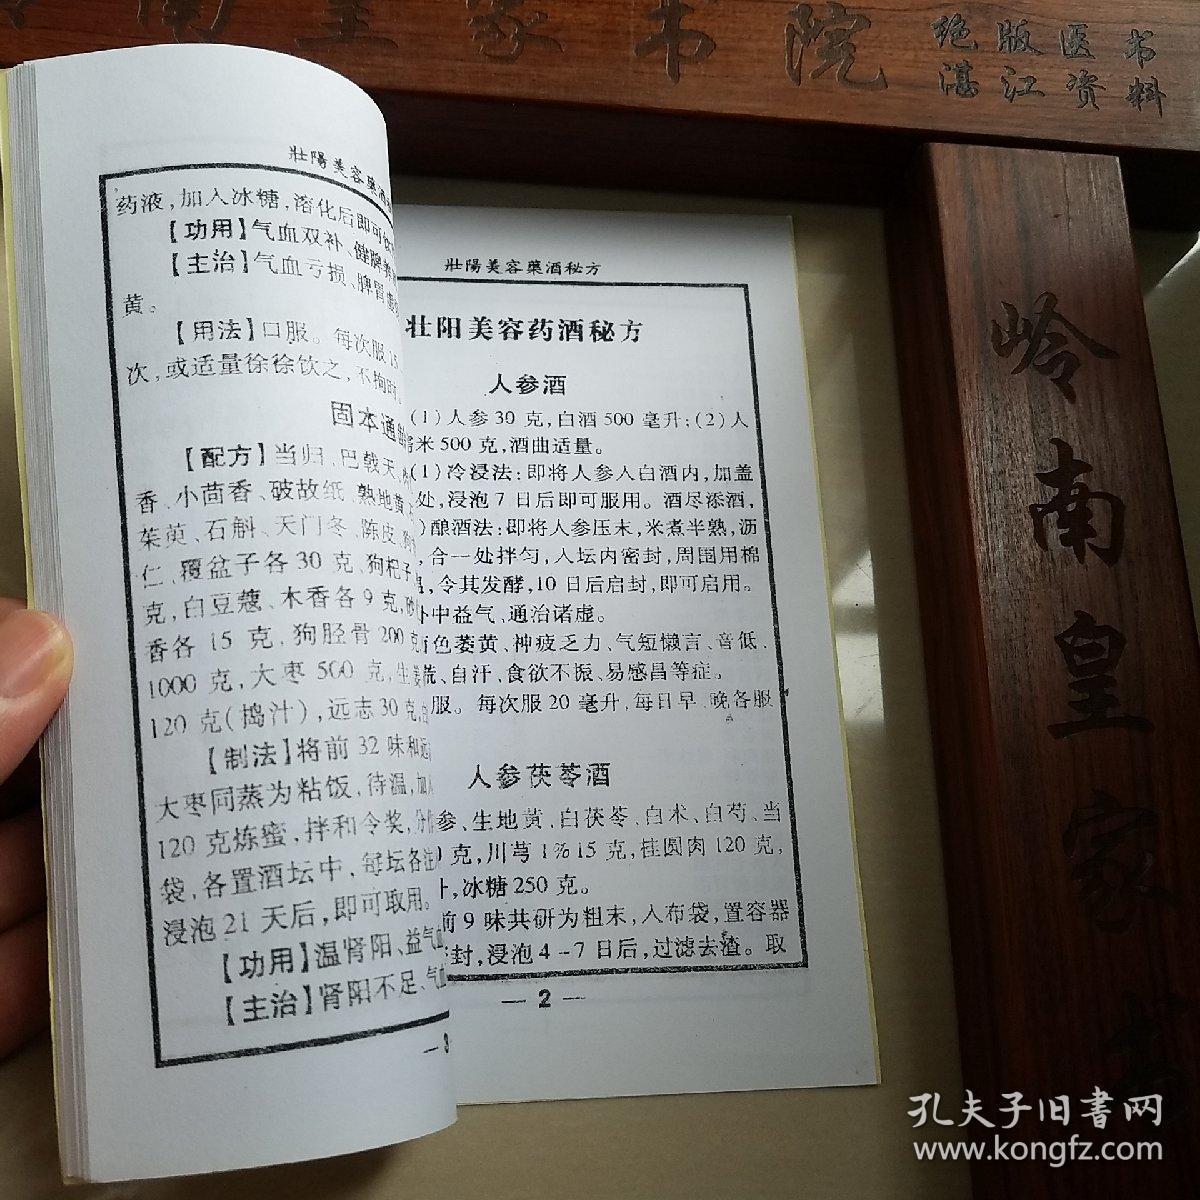 南皇家书院
绝版医书
湛江资料
岭南皇家书
壮陽美容藥酒
药液，加入冰糖，溶化后即可饮
【功用】气血双补、健脾养
【主治】气血亏损、脾胃虚
黄。
【用法】口服。每次服15
次，或适量徐徐饮之，不拘时
固本通
【配方】当归、巴戟天、
香、小茴香、破故纸、熟地黄、
茱萸、石斛、天门冬、陈皮、
仁、覆盆子各30克，狗杞子
克，白豆蔻、木香各9克，
香各15克，狗胫骨200克
1000克，大枣500克，生姜
120克(捣汁)，远志30克，
【制法】将前32味和远
大枣同蒸为粘饭，待温，加
120克炼蜜，拌和令奖，分
袋，各置酒坛中，每坛各
浸泡21天后，即可取用。
【功用】温肾阳、益气血
【主治】肾阳不足、气血
—3
壯陽美容藥酒秘方
壮阳美容药酒秘方
人参酒
(1)人参30克，白酒500毫升；(2)人
米500克，酒曲适量。
1)冷浸法：即将人参入白酒内，加盖
处，浸泡7日后即可服用。酒尽添酒，
)酿酒法：即将人参压末，米煮半熟，沥
，合一处拌匀，入坛内密封，周围用棉
，令其发酵，10日后启封，即可启用。
补中益气、通治诸虚。
面色萎黄、神疲乏力、气短懒言、音低、
慌、自汗，食欲不振、易感昌等症。
服。每次服20毫升，每日早、晚各服
人参茯苓酒
参、生地黄、白茯苓、白术、白芍、当
克，川芎1%15克，桂圆肉120克，
，冰糖250克。
前9味共研为粗末，入布袋，置容器
封，浸泡4-7日后，过滤去渣。取
— 2 —
孔夫子旧書网
www.kongfz.com